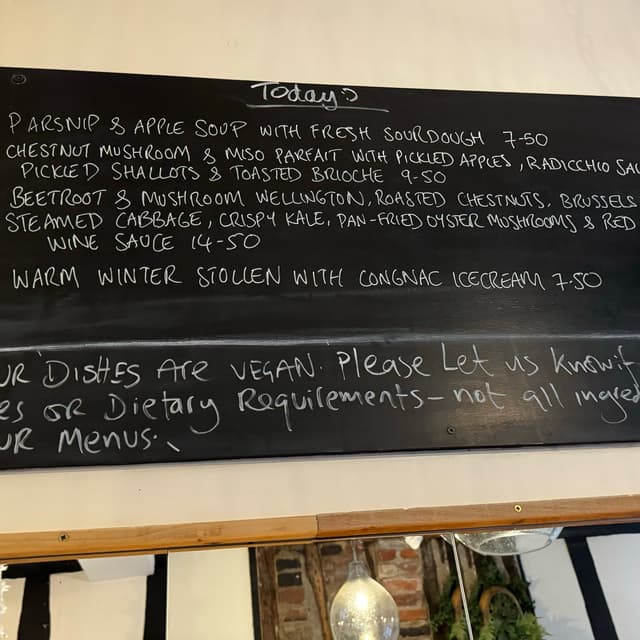 Today:
PARSNIP & APPLE SOUP WITH FRESH SOURDOUGH 7-50
CHESTNUT MUSHROOM & MISO PARFAIT WITH PICKLED APPLES, RADICCHIO SAL
PICKLED SHALLOTS & TOASTED BRIOCHE 9-50
BEETROOT & MUSHROOM WELLINGTON, ROASTED CHESTNUTS, BRUSSELS
STEAMED CABBAGE, CRISPY KALE, PAN-FRIED OYSTER MUSHROOMS & RED
WINE SAUCE 14-50
WARM WINTER STOLLEN WITH CONGNAC ICECREAM 7-50
UR DISHES ARE VEGAN. Please Let us know if
es or Dietary Requirements - not all ingred
UR Menus.